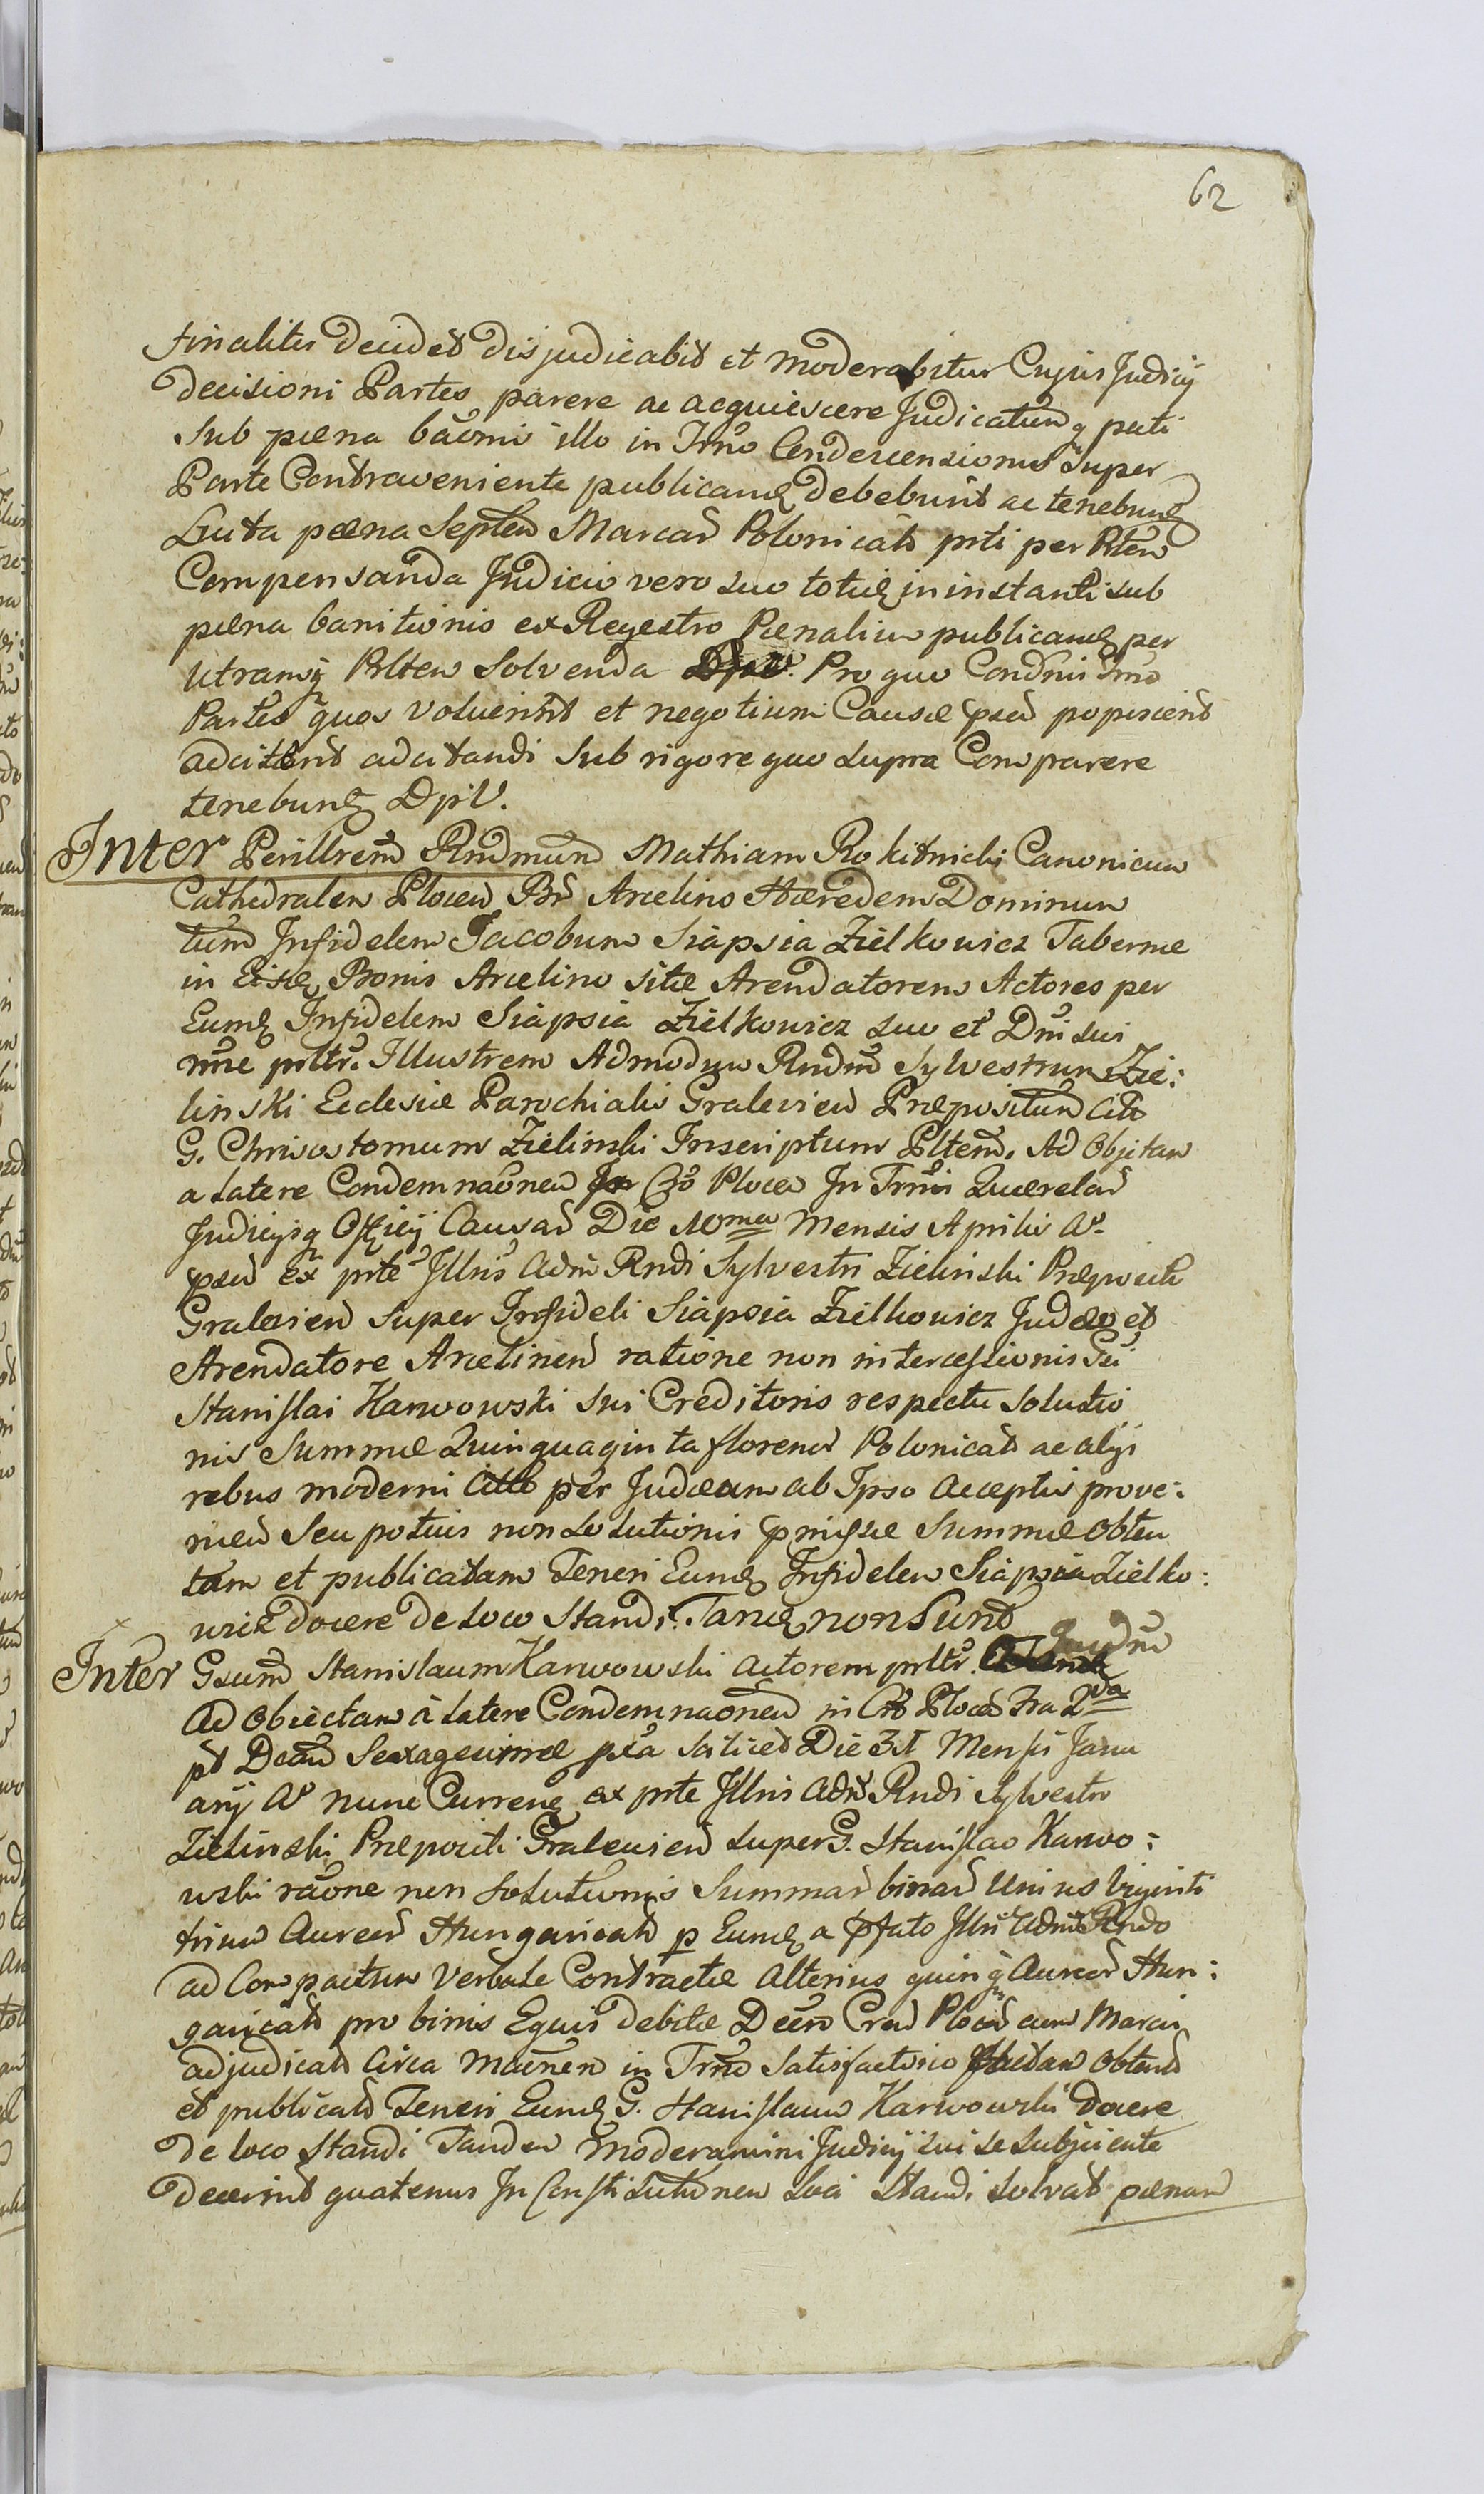 62
finaliter decidet disjudicabit et moderabitur Cujus Judicij
decisioni Partes parere ac acquiescere Judicatumq pati
Sub pœna bãonis illo in Trño Condescensionis super
Parte Contraveniente publicandæ debebunt ac tenebunt
Luita pœna Septem Marcar Polonical prti per Rtem
Compensanda Judicio vero suo totiq in instanti sub
pœna banitionis ex Regestro Pœnalium publicandæ per
utramq Prtem Solvenda Pro quo Condñis Trño
Partes quos voluerint et negotium Causæ pred poposcerit
adcitent adcitandi sub rigore quo supra Comparere
tenebunt DpiV.
Inter Perillrem Rndmum Mathiam Rokitnicki Canonicum
Cathedralem Plocen Br Arcelino Hæredem Dominum
tum Infidelem Jacobum Siapsia Zielkowicz Tabernæ
in Eisd Bonis Arcelino sitæ Arendatorem Actores per
Eund Infidelem Siapsia Zielkowicz suo et Dñi sui
nñe prltr. Illustrem Admodum Rndm Sylvestrum Zie:
linski Ecclesiæ Parochialis Gralevien Præpositum Citt
G. Chrisostomum Zielinski Inscriptum Pltem. Ad Objetam
a latere Condemnaõnem Cro Plocen In Trñis Querelar
Judicijsq Officij Causar Die 10ma Mensis Aprilis A°
pred ex prte Illris Adm Rndi Sylvestri Zielinski Præpositi
Gralevien super Infideli Siapsia Zielkowicz Judæo et
Arendatore Arcelinen ratione non intercessionis Gsi
Stanislai Karwowski sui Creditoris respectu solutio
nis Summæ Quinquaginta florenor Polonical ac alijs
rebus moderni Citti per Judæum ab Ipso acceptis prove:
nien Seu potius non solutionis pmissæ Summæ obten
tam et publicatam Teneri Eund Infidelem Siapsia Zielko:
wicz docere de loco Standi. Tand non Sunt
Inter Gsum Stanislaum Karwowski actorem prltr. Eundm
Ad Obiectam à latere Condemnaõnem in Cro Plocen Fra 2da
pt Dcam Sexagesimæ pxa scilicet Die 31 Mensis Janu
arij A° nunc Curren ex prte Illris Adm Rndi Sylvestri
Zielinski Præpositi Gralevien super G. Stanislao Karwo:
wski raõne non solutionis Summar binar Unius viginti
trium Aureor Hungarical p Eund a pfato Illri Adm Rndo
ad Compactum verbale Contractæ Alterius quinq Aureor Hun:
garical pro binis Equis debitæ Decro Cren Plocen cum Marcis
adjudical circa in Trño Satisfactorio factam obtent
et publical Teneri Eund G. Stanislaum Karwowski docere
de loco standi Tandem Moderamini Judicij sui se subjiciente
decernit quatenus In Constitutionem loci Standi Solvat pœnam